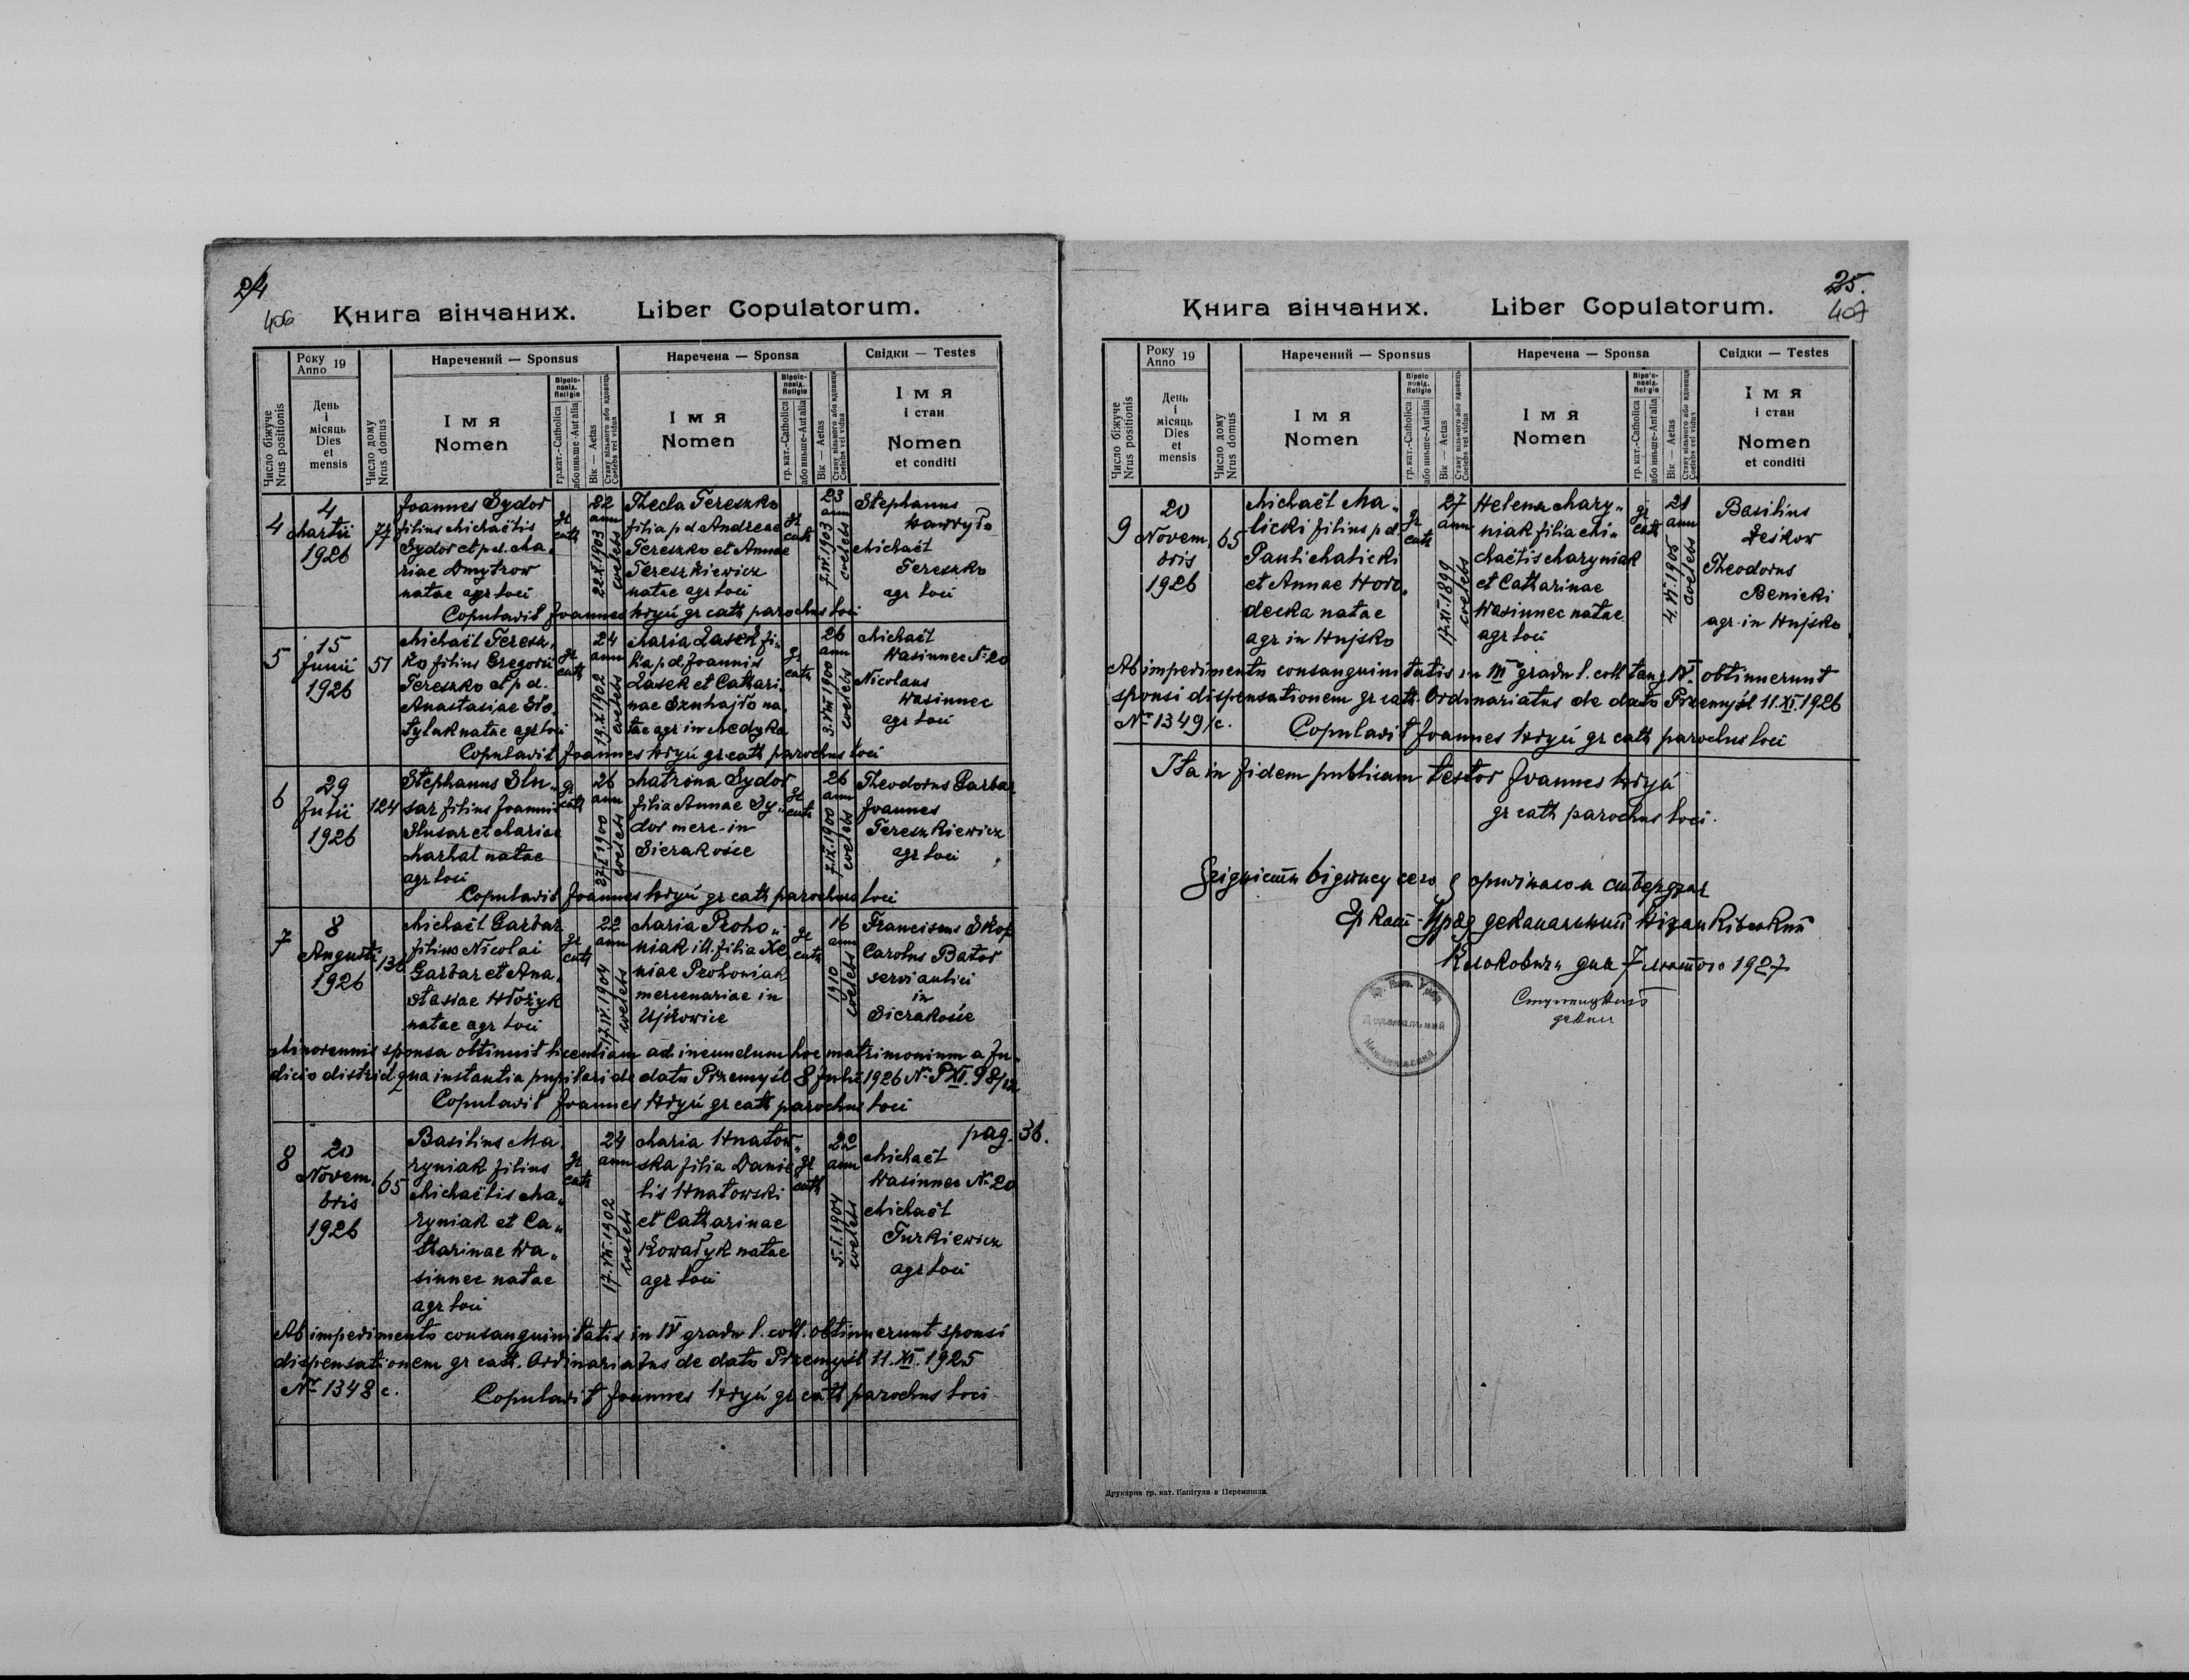 24
406
Книга вінчаних. Liber Copulatorum.
Число біжуче Nrus positionis
Року Anno 19
День і місяць Dies et mensis
Число дому Nrus domus
Наречений — Sponsus
Імя Nomen
Віроісповід. Religio
гр.кат.-Catholica
або иньше-Aut alia
Вік — Aetas
Стану вільного або вдовець Coelebs vel viduus
Наречена — Sponsa
Імя Nomen
Віроісповід. Religio
гр. кат.-Catholica
або иньше-Aut alia
Вік — Aetas
Стану вільного або вдовиця Coelebs vel vidua
Свідки — Testes
Імя і стан
Nomen et conditi
4
4 Martii 1926
77
Joannes Sydor
filius Michaëlis
Sydor et p.d. Ma„
riae Dmytrow
natae agr loci
gr cath
22 ann
22.X.1903 coelebs
Thecla Tereszko
filia p d Andreae
Tereszko et Annae
Tereszkiewicz
natae agr loci
gr cath
23 ann
7.IV.1903 coelebs
Stephanus
Hawryło
Michaël
Tereszko
agr loci
Copulavit Joannes Hryń gr cath parochus loci
5
15 Junii 1926
51
Michaël Teresz„
ko filius Gregorii
Tereszko et p d.
Anastasiae Sło„
tylak natae agr loci
gr cath
24 ann
19.X.1902 coelebs
Maria Lasek fi„
lia p d. Joannis
Lasek et Cathari„
nae Szuhajło na„
tae agr in Medyka
gr cath
26 ann
3.VIII.1900 coelebs
Michaël
Wasinnec № 20
Nicolaus
Wasinnec
agr loci
Copulavit Joannes Hryń gr cath parochus loci
6
29 Julii 1926
124
Stephanus Slu„
sar filius Joannis
Slusar et Mariae
Marhal natae
agr loci
gr cath
26 ann
27.I.1900 coelebs
Matrona Sydor
filia Annae Sy„
dor merc. in
Sierakośce
gr cath
26 ann
7.IX.1900 coelebs
Theodorus Garbar
Joannes
Tereszkiewicz
agr loci
Copulavit Joannes Hryń gr cath parochus loci
7
8 Augusti 1926
136
Michaël Garbar
filius Nicolai
Garbar et Ana„
stasiae Włożyk
natae agr loci
gr cath
22 ann
17.IV.1904 coelebs
Maria Proho„
niak ill. filia Xe„
niae Prohoniak
mercenariae in
Ujkowice
gr cath
16 ann
1910 coelebs
Franciscus Skop
Carolus Bator
servi aulici
in
Sierakośce
Minorennis sponsa obtinuit licentiam ad ineundum hoc matrimonium a Ju„
dicio district qua instantia pupilari de dato Przemyśl 8 Julii 1926 № P XI. 98/12
Copulavit Joannes Hryń gr cath parochus loci
8
20 Novem„ bris 1926
65
Basilius Ma„
ryniak filius
Michaëlis Ma„
ryniak et Ca„
tharinae Wa„
sinnec natae
agr loci
gr cath
24 ann
17.VII.1902 coelebs
Maria Hnatow„
ska filia Danie„
lis Hnatowski
et Catharinae
Kowałyk natae
agr loci
gr cath
22 ann
5.I.1904 coelebs
pag. 36.
Michaël
Wasinnec № 20
Michaël
Turkiewicz
agr loci
Ab impedimento consanguinitatis in IV gradu l. coll. obtinuerunt sponsi
dispensationem gr cath. Ordinariatus de dato Przemyśl 11.XI.1925
№ 1348 c. Copulavit Joannes Hryń gr cath parochus loci
25.
407
Книга вінчаних. Liber Copulatorum.
Число біжуче Nrus positionis
Року Anno 19
День і місяць Dies et mensis
Число дому Nrus domus
Наречений — Sponsus
Імя Nomen
Віроісповід. Religio
гр. кат.-Catholica
або иньше-Aut alia
Вік — Aetas
Стану вільного або вдовець Coelebs vel viduus
Наречена — Sponsa
Імя Nomen
Віроісповід. Religio
гр. кат.-Catholica
або иньше-Aut alia
Вік — Aetas
Стану вільного або вдовиця Coelebs vel vidua
Свідки — Testes
Імя і стан
Nomen et conditi
9
20 Novem„ bris 1926
65
Michaël Ma„
licki filius p d.
Pauli Malicki
et Annae Horo„
decka natae
agr in Hujsko
gr cath
27 ann
17.XI.1899 coelebs
Helena Mary„
niak filia Mi„
chaëlis Maryniak
et Catharinae
Wasinnec natae
agr loci
gr cath
21 ann
4.VI.1905 coelebs
Basilius
Leśkow
Theodorus
Benicki
agr in Hujsko
Ab impedimento consanguinitatis in III gradu l. coll tang IV. obtinuerunt
sponsi dispensationem gr cath. Ordinariatus de dato Przemyśl 11.XI.1926
№ 1349/c. Copulavit Joannes Hryń gr cath parochus loci
Ita in fidem publicam testor Joannes Hryń
gr cath parochus loci.
Згідність відпису сего з оригіналом стверджає
Гр кат Уряд деканальний Нижанківский
Клоковичи дня 7 лютого 1927
декан
Гр. Кат. Уряд
Деканальний
Друкарня гр. кат. Капітули в Перемишли.